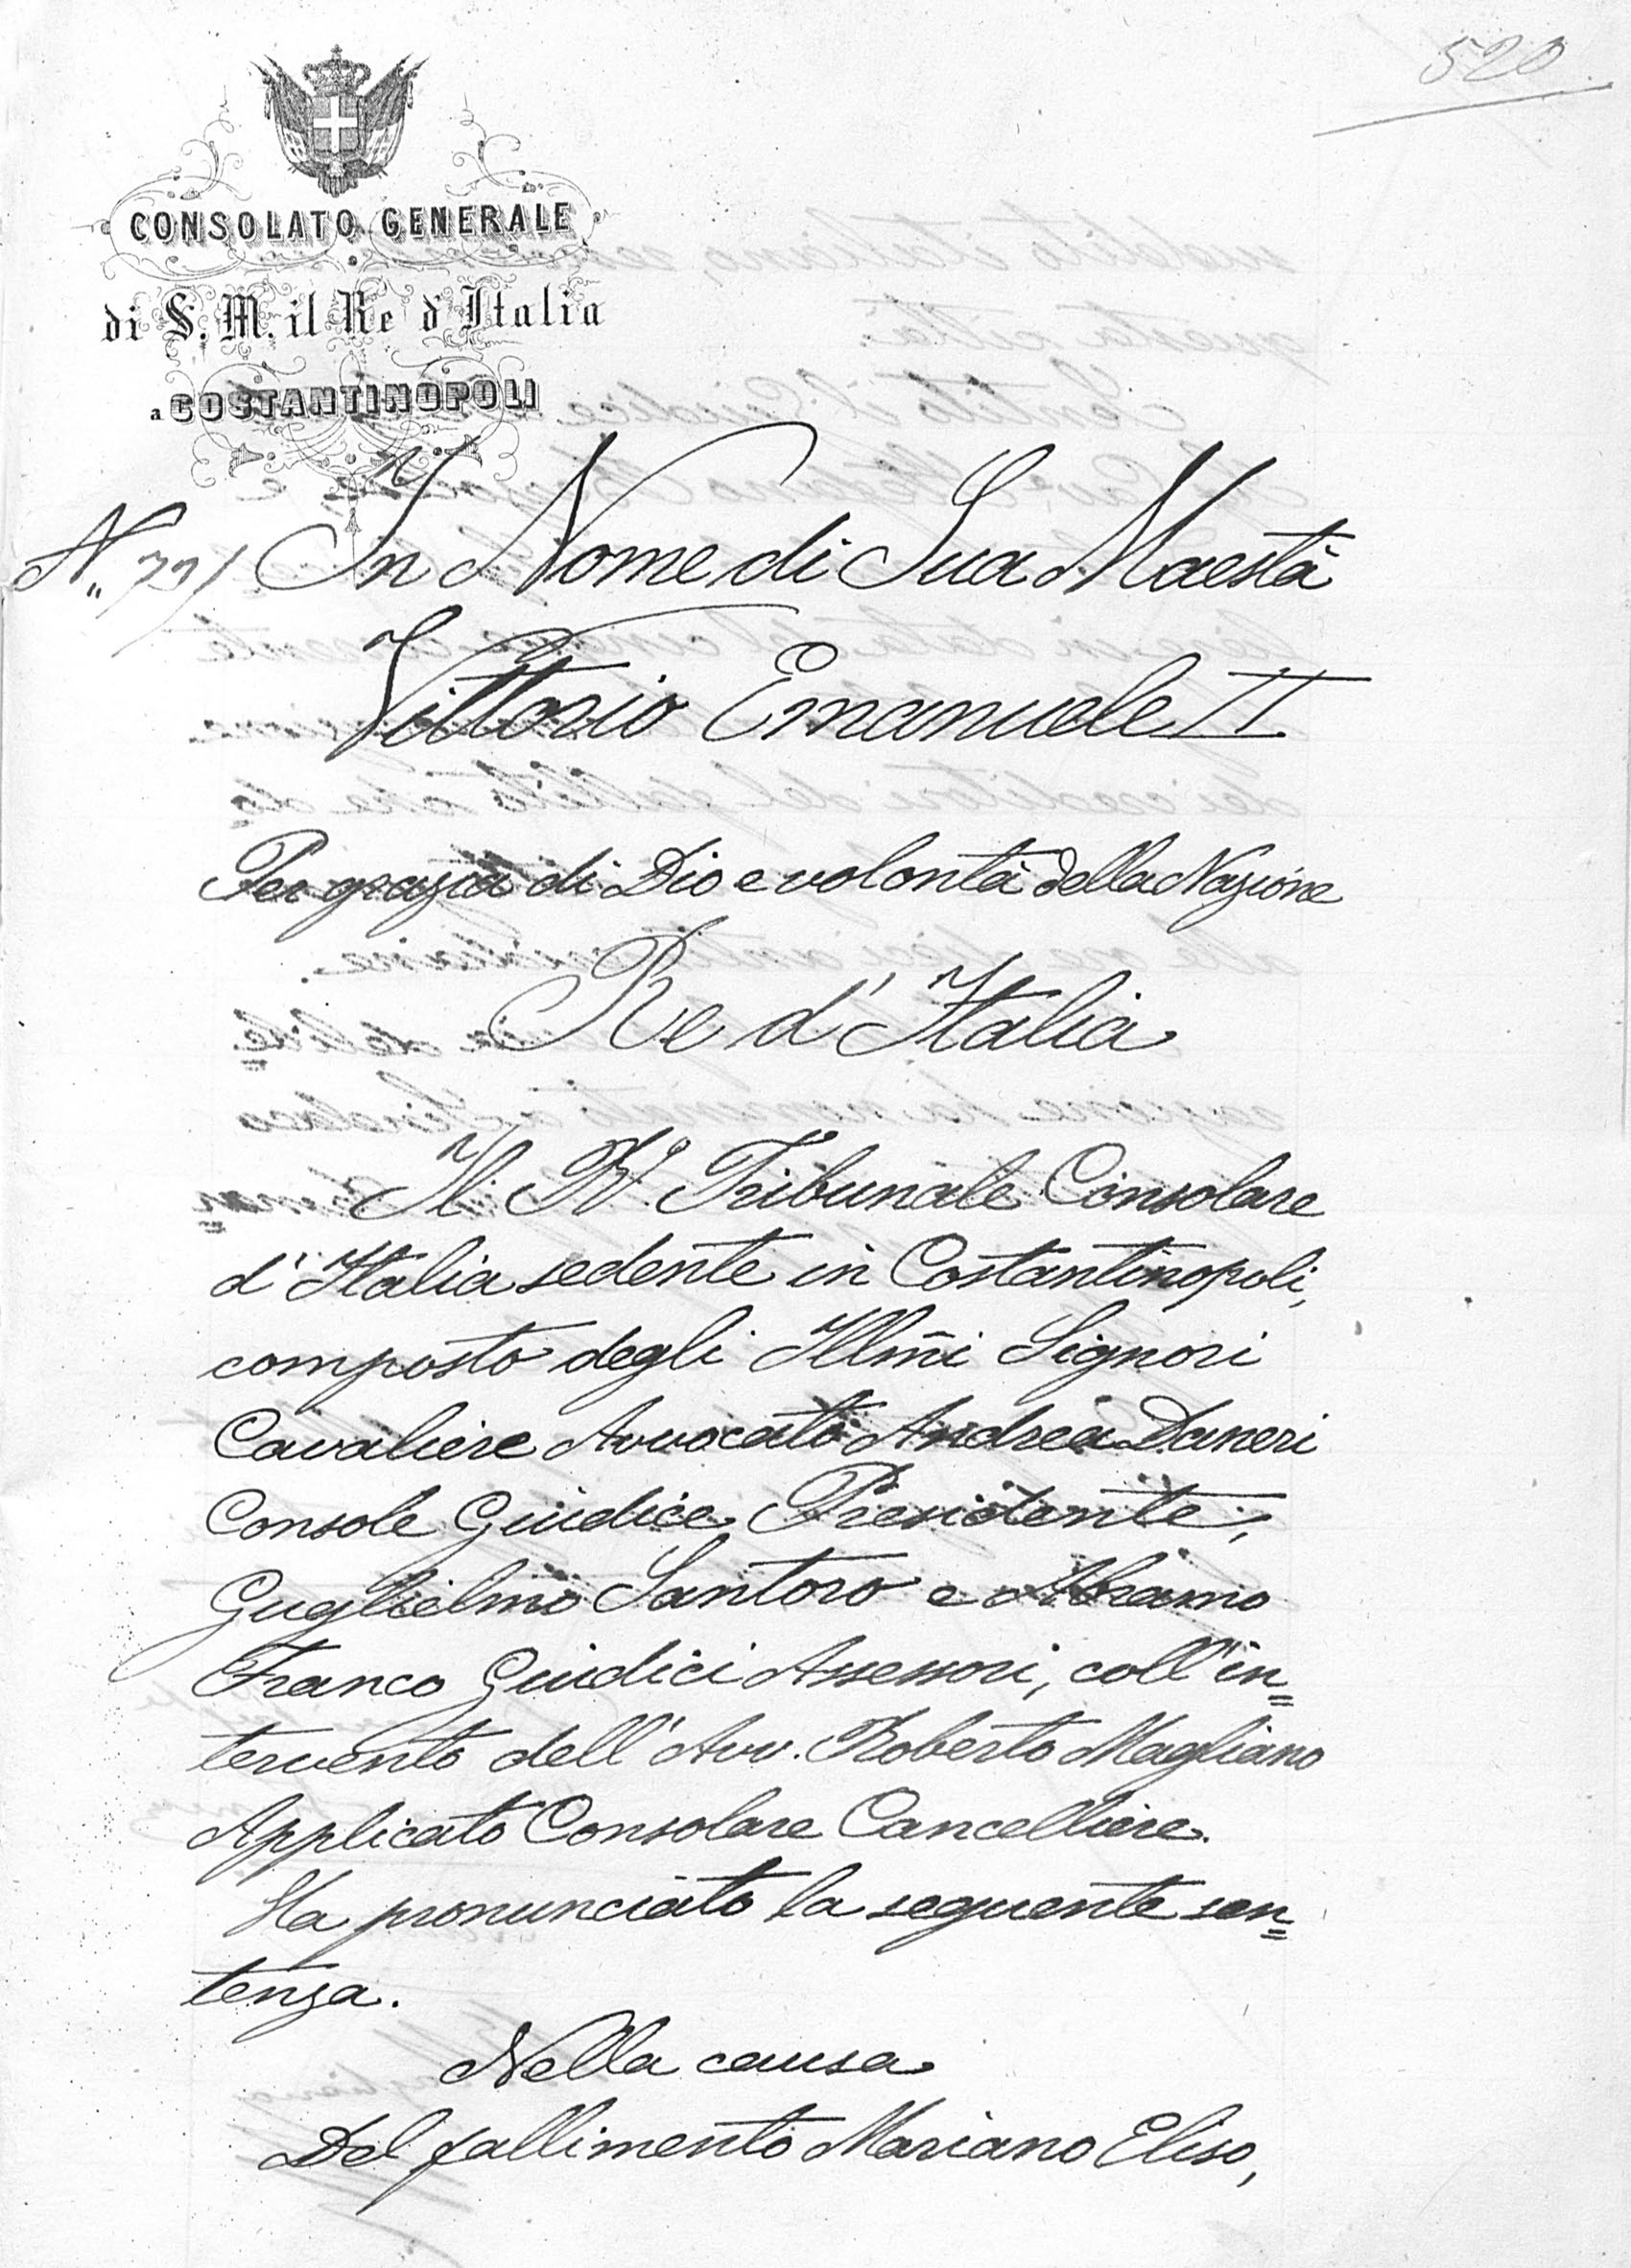 520
CONSOLATO GENERALE
di S. M. il Re d'Italia
a COSTANTINOPOLI
N.
In Nome di Sua Maestà
Vittorio Emanuele II
Per grazia di Dio e volontà della Nazione
Re d'Italia
Il Rº Tribunale Consolare
d'Italia sedente in Costantinopoli,
composto degli Illmi Signori
Cavaliere Avvocato Andrea Daneri
Console Giudice Presidente,
Guglielmo Santoro e Abramo
Franco Giudici Assessori, coll'in=
tervento dell'Avv. Roberto Magliano
Applicato Consolare Cancelliere.
Ha pronunciato la seguente sen=
tenza.
Nella causa
Del fallimento Mariano Eliso,